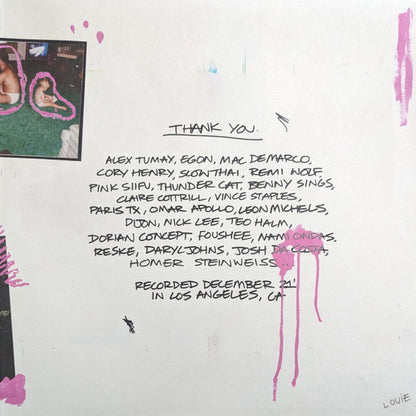 THANK YOU.
ALEX TUMAY, EGON, MAC DEMARCO,
CORY HENRY, SLOWTHAI, REMI WOLF,
PINK SIIFU, THUNDER CAT, BENNY SINGS,
CLAIRE COTTRILL, VINCE STAPLES,
PARIS TX, OMAR APOLLO, LEON MICHELS,
DIJON, NICK LEE, TEO HALM,
DORIAN CONCEPT, FOUSHEE, NAMI ONDAS,
RESKE, DARYL JOHNS, JOSH DA COSTA,
HOMER STEINWEISS...
RECORDED DECEMBER 21'
IN LOS ANGELES, CA.
LOUIE